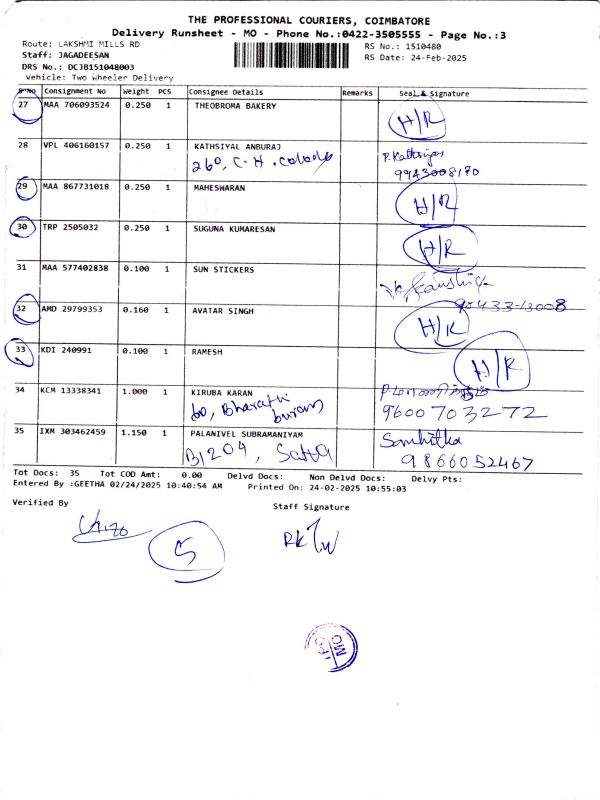 THE PROFESSIONAL COURIERS, COIMBATORE
Delivery Runsheet - MO - Phone No.:0422-3505555 - Page No.:3
Route: LAKSHMI MILLS RD RS No.: 1510480
Staff: JAGADEESAN RS Date: 24-Feb-2025
DRS No.: DCJB151048003
Vehicle: Two Wheeler Delivery
S No Consignment No Weight PCS Consignee Details Remarks Seal & Signature
27 MAA 706093524 0.250 1 THEOBROMA BAKERY H/R
28 VPL 406160157 0.250 1 KATHSIYAL ANBURAJ
260, C.H. Colony 9943008170
29 MAA 867731018 0.250 1 MAHESWARAN H/R
30 TRP 2505032 0.250 1 SUGUNA KUMARESAN H/R
31 MAA 577402838 0.100 1 SUN STICKERS
95433-13008
32 AMD 29799353 0.160 1 AVATAR SINGH H/R
33 KDI 240991 0.100 1 RAMESH H/R
34 KCM 13338341 1.000 1 KIRUBA KARAN
60, Bharathi 9600703272
puram
35 IXM 303462459 1.150 1 PALANIVEL SUBRAMANIYAM Samhitka
B1204, Satta 9866052467
Tot Docs: 35 Tot COD Amt: 0.00 Delvd Docs: Non Delvd Docs: Delvy Pts:
Entered By :GEETHA 02/24/2025 10:40:54 AM Printed On: 24-02-2025 10:55:03
Verified By
Staff Signature
5
MO